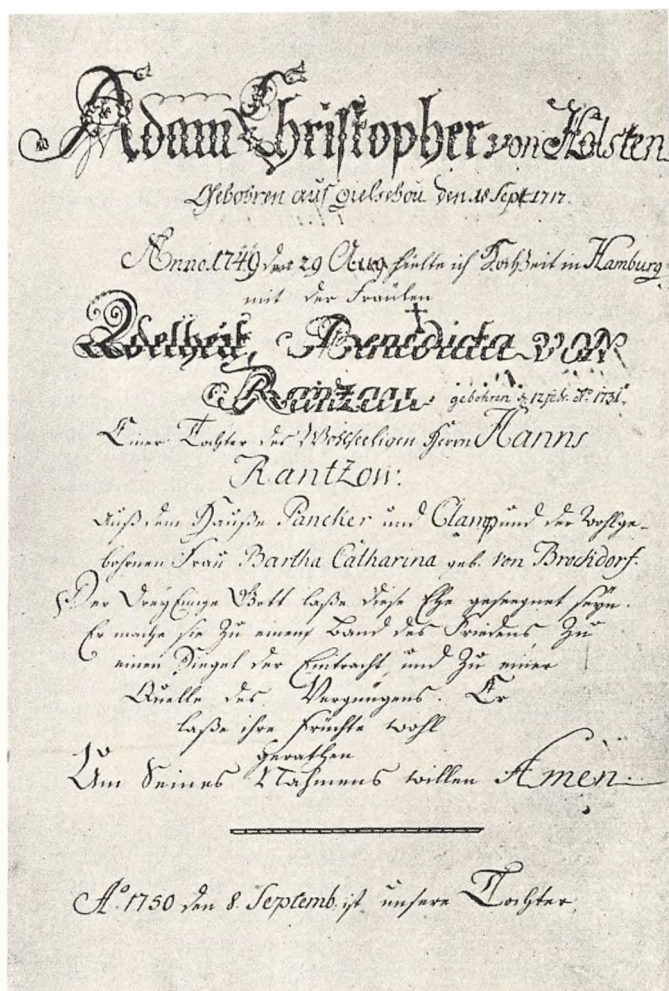 Adam Christopher von Holsten
Gebohren auf Gielschou den 18 Sept. 1717.
Anno. 1749 den 29 Aug hielte ich Hochzeit in Hamburg
mit der Fräulen
Adelheit, Benedicta von
Ranzau gebohren d. 12 feb. Aº. 1731.
Einer Tochter des Wohlseeligen Herrn Hanns
Rantzow:
auß dem Hauße Pancker und Clamp und der Wohlge-
bohrnen Frau Bartha Catharina geb. von Brockdorf.
Der DreyEinige Gott laße diese Ehe geseegnet seyn.
Er mache sie zu einem Band des Friedens, zu
einen Siegel der Eintracht, und zu einer
Quelle des Vergnügens. Er
laße ihre Früchte wohl
gerathen
Um Seines Nahmens willen Amen.
Aº. 1750 den 8. Septemb. ist unsere Tochter,